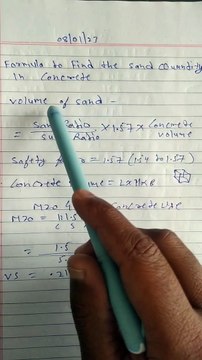 08/01/27
Formula to Find the sand Quantity
In Concrete
Volume of Sand -
= Sand Ratio × 1.57 × Concrete
Ratio Volume
Safety = 1.57 (1.54 to 1.57)
Concrete = L×H×B
M20 Concrete Use
M20 =
C S
= 1.5
VS =